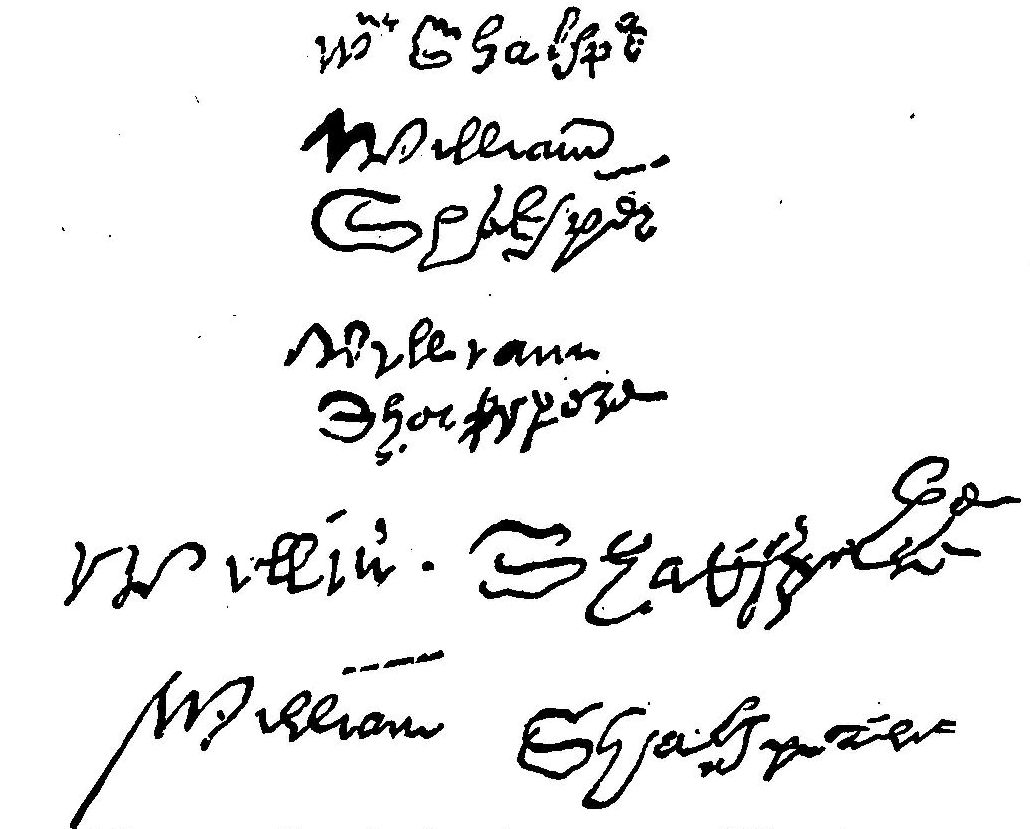 Wm Shakspē
William
Shakspēr
William
Shakspere
Willm. Shakspere
William Shakspeare